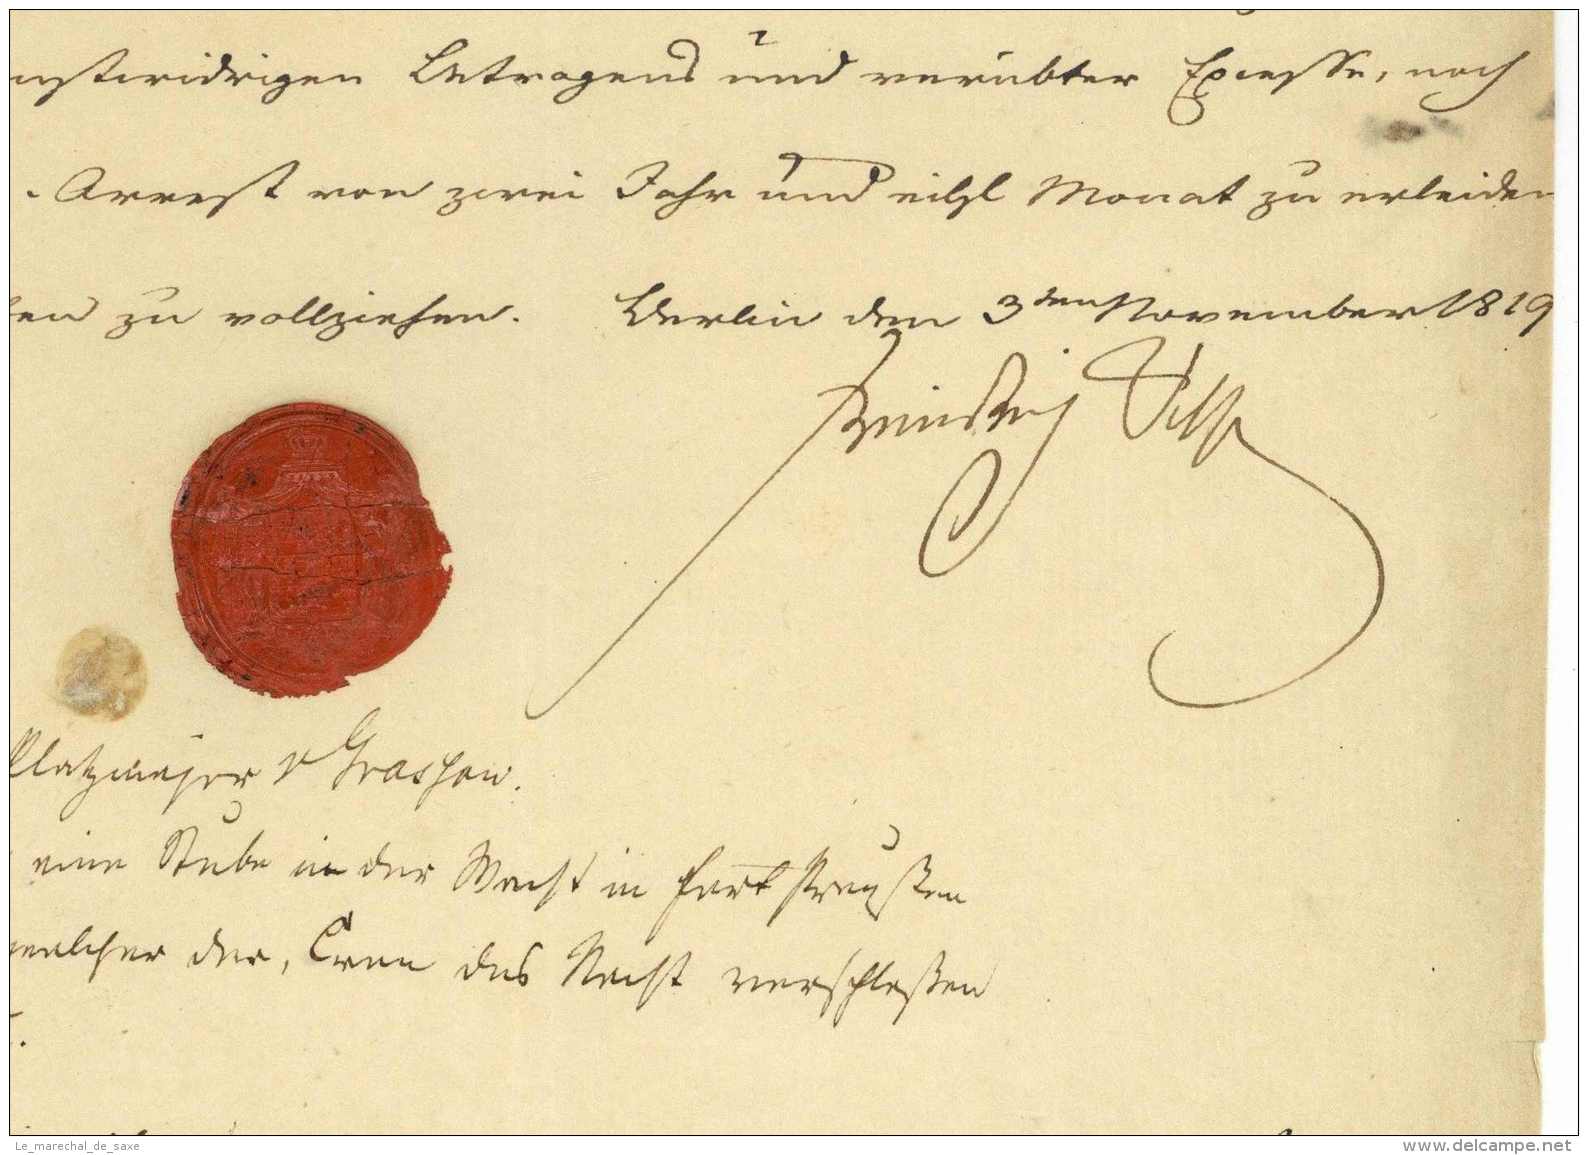 nstwidrigen Betragens und verübter Excesse, noch
Arrest von zwei Jahr und eilf Monat zu erleiden
en zu vollziehen. Berlin den 3ten November 1819
Friedrich Wilh
Platzmajor v
eine Stube in der Wacht in Fort Preußen
welcher der, des Nacht verschloßen
Le_marechal_de_saxe
www.delcampe.net